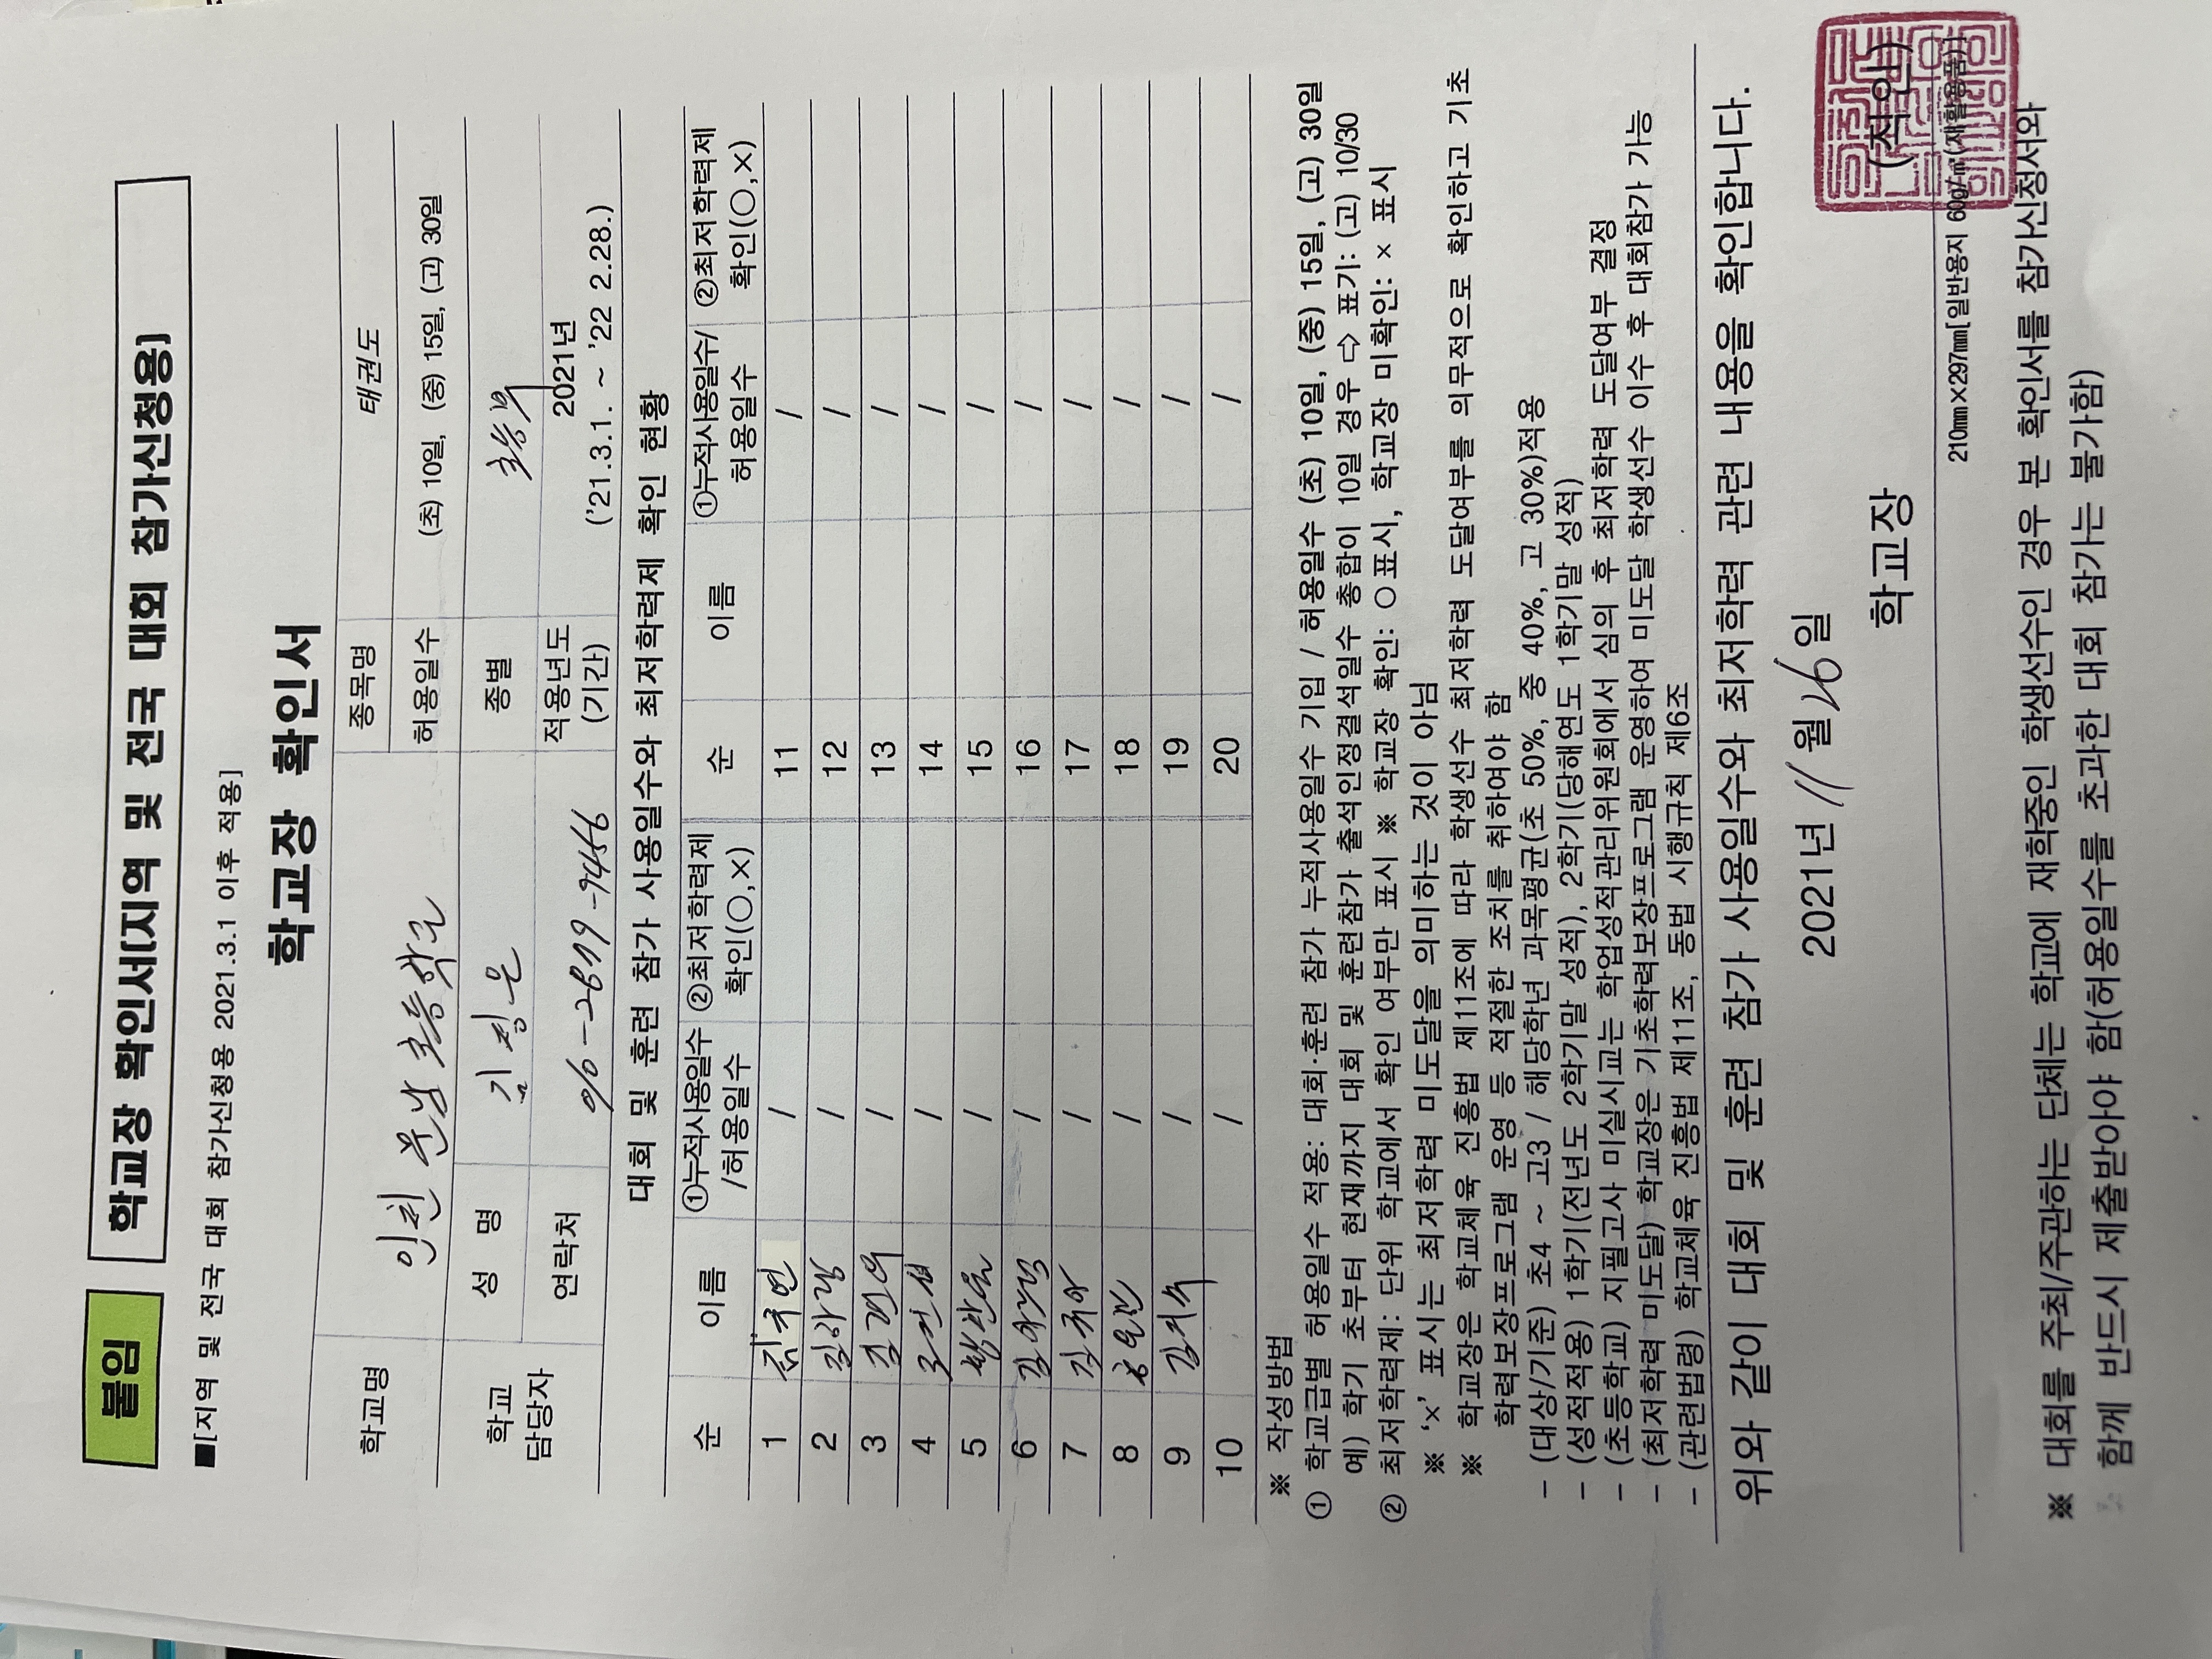 붙임
학교장 확인서(지역 및 전국 대회 참가신청용)
■[지역 및 전국 대회 참가신청용 2021.3.1 이후 적용]
학교장 확인서
학교명 인천 초등학교 종목명 태권도
허용일수 (초) 10일, (중) 15일, (고) 30일
학교 담당자 성 명 김 은 종별 초등부
연락처 적용년도 (기간) 2021년 ('21.3.1. ~ '22 2.28.)
대회 및 훈련 참가 사용일수와 최저학력제 확인 현황
순 이름 ①누적사용일수 /허용일수 ②최저학력제 확인(○,×) 순 이름 ①누적사용일수/ 허용일수 ②최저학력제 확인(○,×)
1 김 연 / 11 /
2 / 12 /
3 김 / 13 /
4 / 14 /
5 / 15 /
6 김 / 16 /
7 김 / 17 /
8 / 18 /
9 김 / 19 /
10 / 20 /
※ 작성방법
① 학교급별 허용일수 적용: 대회·훈련 참가 누적사용일수 기입 / 허용일수 (초) 10일, (중) 15일, (고) 30일
예) 학기 초부터 현재까지 대회 및 훈련참가 출석인정결석일수 총합이 10일 경우 ⇨ 표기: (고) 10/30
② 최저학력제: 단위 학교에서 확인 여부만 표시 ※ 학교장 확인: ○표시, 학교장 미확인: × 표시
※ '×' 표시는 최저학력 미도달을 의미하는 것이 아님
※ 학교장은 학교체육 진흥법 제11조에 따라 학생선수 최저학력 도달여부를 의무적으로 확인하고 기초
학력보장프로그램 운영 등 적절한 조치를 취하여야 함
- (대상/기준) 초4 ~ 고3 / 해당학년 과목평균(초 50%, 중 40%, 고 30%)적용
- (성적적용) 1학기(전년도 2학기말 성적), 2학기(당해연도 1학기말 성적)
- (초등학교) 지필고사 미실시교는 학업성적관리위원회에서 심의 후 최저학력 도달여부 결정
- (최저학력 미도달) 학교장은 기초학력보장프로그램 운영하여 미도달 학생선수 이수 후 대회참가 가능
- (관련법령) 학교체육 진흥법 제11조, 동법 시행규칙 제6조
위와 같이 대회 및 훈련 참가 사용일수와 최저학력 관련 내용을 확인합니다.
2021년 11월 26일
학교장 (직인)
210㎜×297㎜[일반용지 60g/㎡(재활용품)]
※ 대회를 주최/주관하는 단체는 학교에 재학중인 학생선수인 경우 본 확인서를 참가신청서와
함께 반드시 제출받아야 함(허용일수를 초과한 대회 참가는 불가함)